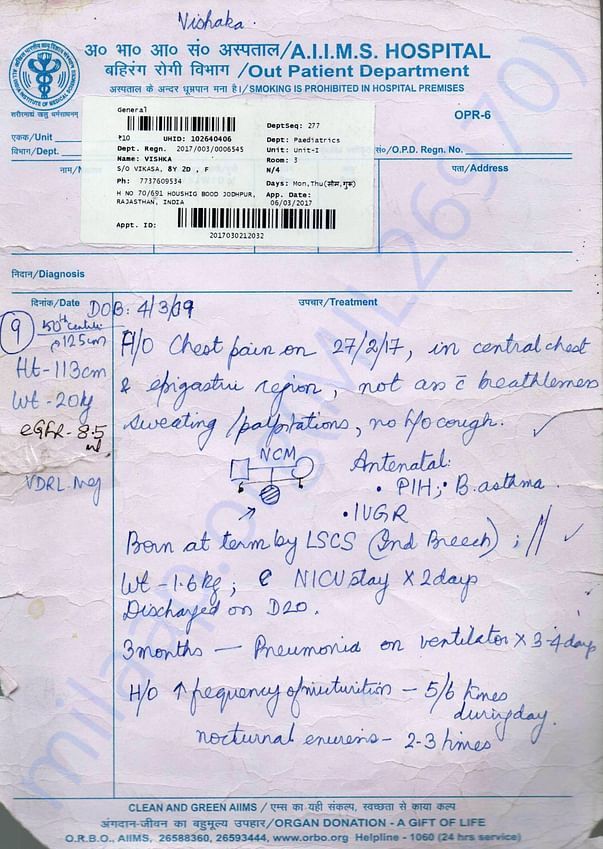 Vishaka.
अ० भा० आ० सं० अस्पताल/A.I.I.M.S. HOSPITAL
बहिरंग रोगी विभाग /Out Patient Department
अस्पताल के अन्दर धूम्रपान मना है।/SMOKING IS PROHIBITED IN HOSPITAL PREMISES
शरीरमाद्यं खलु धर्मसाधनम्
OPR-6
एकक/Unit
विभाग/Dept.
सं०/O.P.D. Regn. No.
नाम/N
पता/Address
General
₹10 UHID: 102640406
Dept. Regn. 2017/003/0006545
Name: VISHKA
S/O VIKASA, 8Y 2D , F
Ph: 7737609534
H NO 70/691 HOUSHIG BOOD JODHPUR,
RAJASTHAN, INDIA
Appt. ID:
2017030212032
DeptSeq: 277
Dept: Paediatrics
Unit: Unit-I
Room: 3
N/4
Days: Mon,Thu(सोम,गुरू)
App. Date:
06/03/2017
निदान/Diagnosis
दिनांक/Date
उपचार/Treatment
DOB: 4/3/09
9
50th centile
125cm
Ht - 113cm
Wt - 20kg
eGFR - 8.5
VDRL Neg
H/O Chest pain on 27/2/17, in central chest
& epigastric region, not ass c̄ breathlessness
sweating /palpitations, no h/o cough.
NCM
Antenatal:
• PIH; B. asthma.
• IUGR
Born at term by LSCS (Ind Breech) ;
Wt - 1.6kg; c̄ NICU stay X 2days
Discharged on D20.
3months — Pneumonia on ventilator X 3-4 days
H/O ↑ frequency of micturition – 5/6 times
during day.
nocturnal enuresis – 2-3 times
CLEAN AND GREEN AIIMS / एम्स का यही संकल्प, स्वच्छता से काया कल्प
अंगदान-जीवन का बहुमूल्य उपहार/ORGAN DONATION - A GIFT OF LIFE
O.R.B.O., AIIMS, 26588360, 26593444, www.orbo.org Helpline - 1060 (24 hrs service)